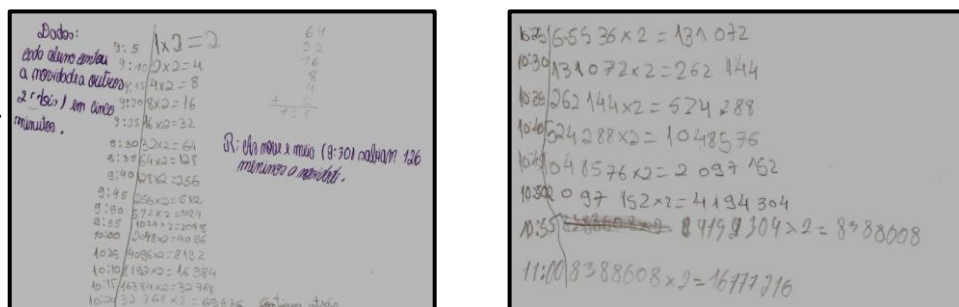 Dados:
cada aluno contou
a novidade a outros
2 (dois) em cinco
minutos.
9:5 1x2=2
9:10 2x2=4
9:15 4x2=8
9:20 8x2=16
9:25 16x2=32
9:30 32x2=64
9:35 64x2=128
9:40 128x2=256
9:45 256x2=512
9:50 512x2=1024
9:55 1024x2=2048
10:00 2048x2=4096
10:05 4096x2=8192
10:10 8192x2=16 384
10:15 16384x2=32 768
10:20 32 768x2=65536 Continua atrás
64
32
16
8
4
+ 2
126
R: Às nove e meia (9:30) sabiam 126
meninos a novidade.
10:25 65536x2=131 072
10:30 131 072x2=262 144
10:35 262 144x2=524 288
10:40 524 288x2=1048576
10:45 1048576x2=2 097 152
10:50 2 097 152x2=4194 304
10:55 4194304x2=8388608
11:00 8388608x2=16777216